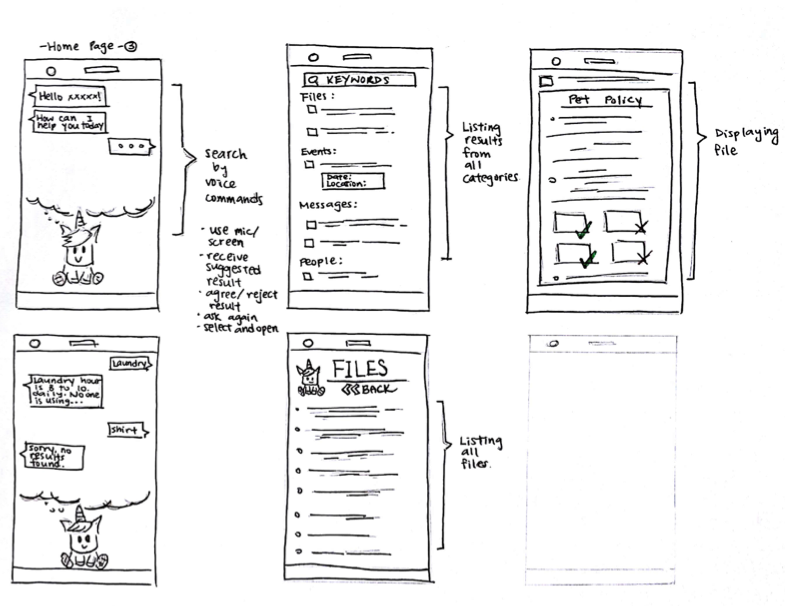 -Home Page-③
Hello xxxxx!
How can I
help you today
search
by
voice
commands
· use mic/
screen
· receive
suggested
result
· agree/reject
result
· ask again
· select and open
KEYWORDS
Files:
Events:
Date:
Location:
Messages:
People:
Listing
results
from
all
categories
Pet Policy
Displaying
file
Laundry
Laundry hour
is 8 to 10
daily. No one
is using...
shirt
Sorry, no
results
found.
FILES
BACK
Listing
all
files.